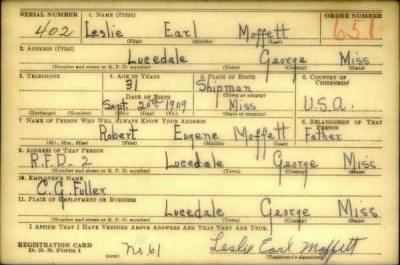 SERIAL NUMBER 1. NAME (Print) ORDER NUMBER
402 Leslie Earl Moffett 651
(First) (Middle) (Last)
2. ADDRESS (Print)
Lucedale George Miss
(Number and street or R. F. D. number) (Town) (County) (State)
3. TELEPHONE 4. AGE IN YEARS 5. PLACE OF BIRTH 6. COUNTRY OF CITIZENSHIP
31 Shipman
DATE OF BIRTH (Town or county)
Sept. 20th 1909 Miss U.S.A.
(Exchange) (Number) (Mo.) (Day) (Yr.) (State or country)
7. NAME OF PERSON WHO WILL ALWAYS KNOW YOUR ADDRESS 8. RELATIONSHIP OF THAT PERSON
Robert Eugene Moffett Father
(Mr., Mrs., Miss) (First) (Middle) (Last)
9. ADDRESS OF THAT PERSON
R.F.D. 2 Lucedale George Miss
(Number and street or R. F. D. number) (Town) (County) (State)
10. EMPLOYER'S NAME
C. G. Fuller
11. PLACE OF EMPLOYMENT OR BUSINESS
Lucedale George Miss.
(Number and street or R. F. D. number) (Town) (County) (State)
I AFFIRM THAT I HAVE VERIFIED ABOVE ANSWERS AND THAT THEY ARE TRUE.
REGISTRATION CARD
D. S. S. Form 1 (over) No. 61 Leslie Earl Moffett
(Registrant's signature)